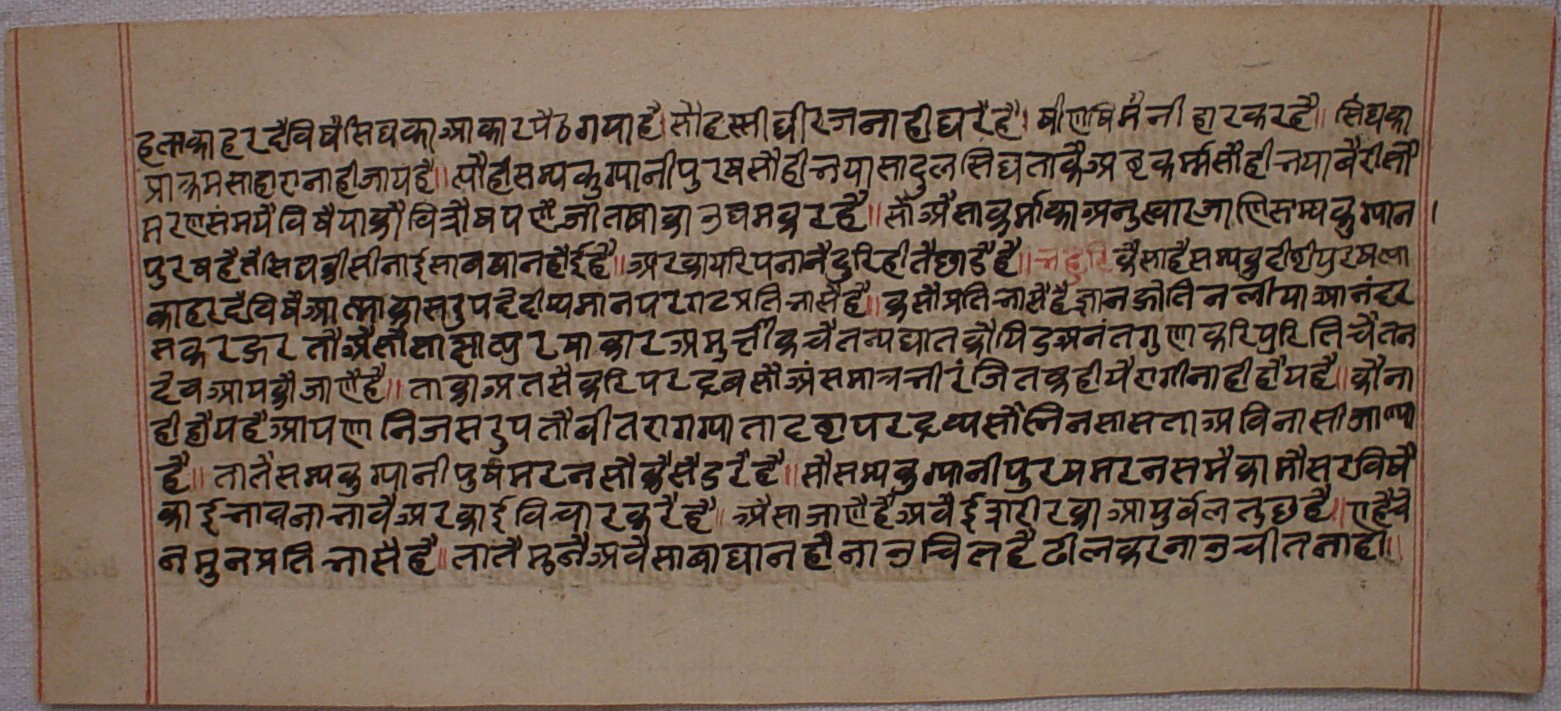 हस्तीका हरदै विषै सिघका आकार पैठ गया है। सौ हस्ती धीरज नाही धरै है। षीण षि मै नी हार करहै॥ सिंघका
प्राक्रम साहारा नाही जाय है॥ त्यौ ही सम्यकु ग्यानी पुरष सौ ही भया सादुल सिघ ताकै अष्ट कर्म्म सौ ही भया बैरी सौ
मरण संमयै विषै याकौ वित्रौषपणै जीतबाका उद्यम करहै॥ सौ अैसा कर्माका अनुस्वार जाणि सम्यकु ग्यान।
पुरष है तै सिघकीसी नाई सावधान होई है॥ अर कायरिपनानै दुरि ही तै छाडै है॥ बहुरि कैसा है सम्यकुदीष्टी पुरष त्या
का हरदै विषै आत्माका सरुप देदीप्यमांन परगट प्रतिभासै है॥ कैसौ प्रतिभासै है ज्ञान जोतिन लीया आनंदर
स कर झरतौ अैसौ साक्षात्पुरषाकार अमुर्त्तीक चैतन्य घातकौ पिंड अनंत गुणा करि पुरिति चैतन
देव आपकौ जाणै है॥ ताका अतसै करि पर द्रव सौ अंसमात्र भी रंजित कहीयै रागी नाही हौय है॥ कौ ना
ही हौय है आपणा निज सरुप तौ वीतराग ग्याता दष्टा पर द्रव्य सौं भिन सासता अविनासी जाण्या
है॥ तातै सम्यकु ग्यानी पुर्ष मरन सौ कैसै डरै है॥ सौ सम्यकु ग्यानी पुरष मरन समै का मौसर विषै
काई भावना भावै अर काई विचार करै है॥ अैसा जाणै है अवै ई शरीरका आयुर्बल तुछ है॥ एहै वे
नमुन प्रतिभासै है॥ तातै मुनै अवै सावाधान हौना उचित है ढील करना उचीत नाही॥